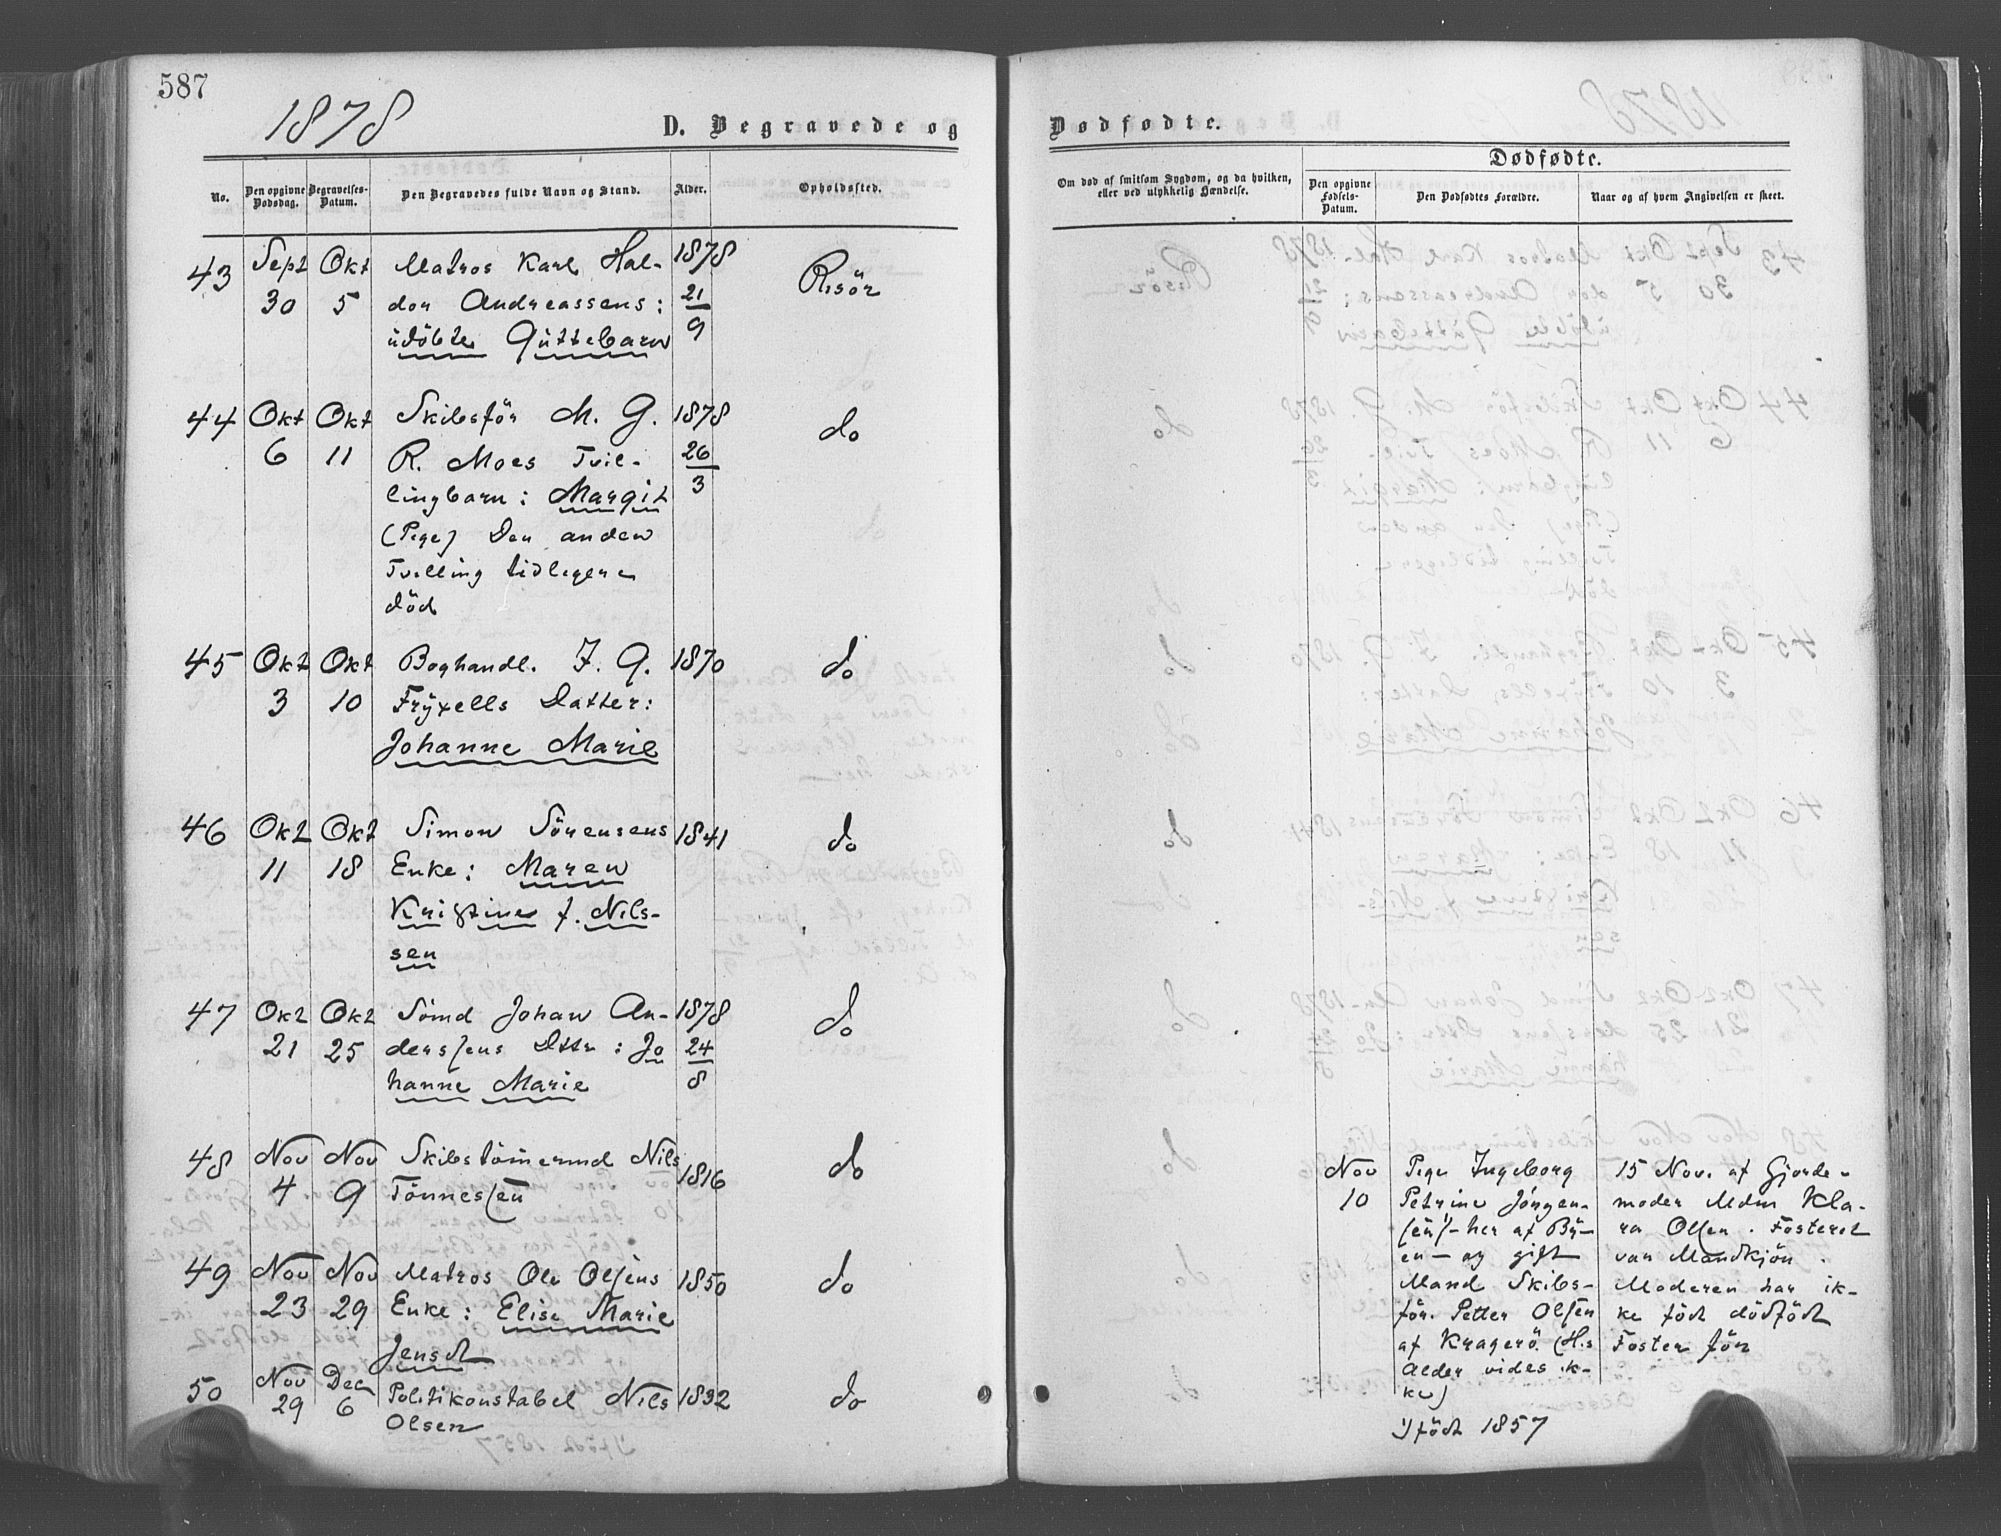 587
1878
D. Begravede og
No.
Den opgivne Dødsdag.
Begravelses-Datum.
Den Begravedes fulde Navn og Stand.
Alder.
Opholdssted.
43 Sept 30 Okt 5 Matros Karl Hal- 1878 21/9 Risör
dor Andreassens:
udöbte Guttebarn
44 Okt 6 Okt 11 Skibsför M. G. 1878 26/3 do
R. Moes Tvil-
lingbarn: Margit
(Pige) Den anden
Tvilling tidligere
död
45 Okt 3 Okt 10 Boghandl. F. G. 1870 do
Fryxells Datter:
Johanne Marie
46 Okt 11 Okt 18 Simon Sörensens 1841 do
Enke: Maren
Kristine f. Nils-
sen
47 Okt 21 Okt 25 Sömd Johan An- 1878 24/8 do
derssens Dttr: Jo
hanne Marie
48 Nov 4 Nov 9 Skibstömermd Nils 1816 do
Tönnessen
49 Nov 23 Nov 29 Matros Ole Olsens 1850 do
Enke: Elise Marie
Jensdt
50 Nov 29 Dec 6 Politikonstabel Nils 1832 do
Olsen
Dødfødte.
Om død af smitsom Sygdom, og da hvilken,
eller ved ulykkelig Hændelse.
Dødfødte.
Den opgivne Fødsels-Datum.
Den Dødfødtes Forældre.
Naar og af hvem Angivelsen er skeet.
Nov
10
Pige Ingeborg
Petrine Jörgen-
sen 1) - her af By-
en - og gift
Mand Skibs-
för. Petter Olsen
af Kragerö. (H:s
Alder vides ik-
ke)
1) född 1857
15 Nov. af Gjorde-
moder Mdm Kla-
ra Olsen. Fosteret
var Mandkjön.
Moderen har ik-
ke född dödfödt
Foster för